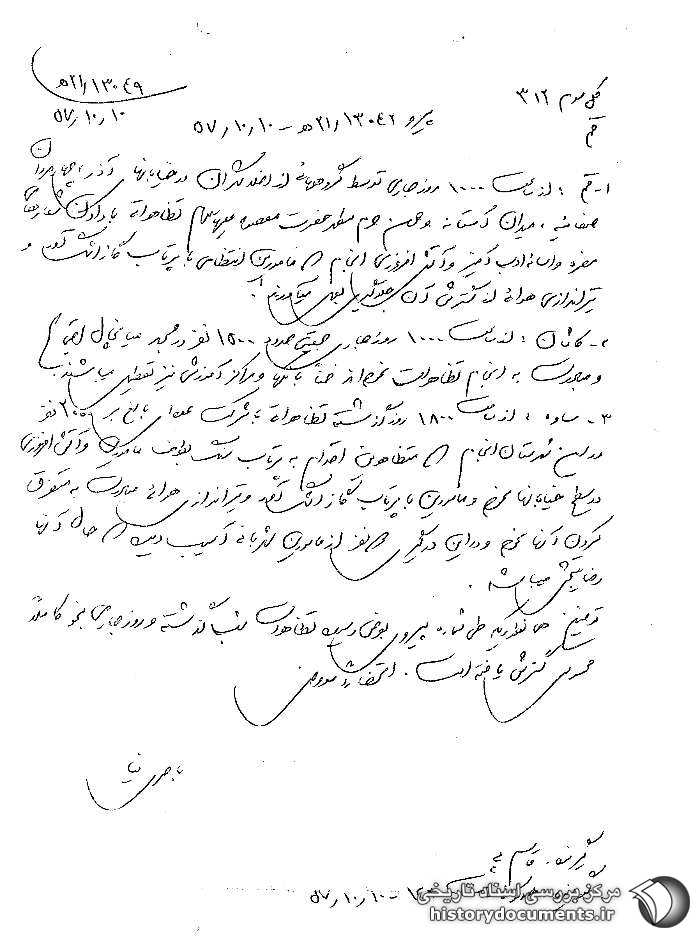 کل سوم ۳۱۲
۲۱/۱۳۰۴۹ه‍
قم
۵۷/۱۰/۱۰
پیرو ۲۱/۱۳۰۴۲ه‍ – ۵۷/۱۰/۱۰
۱- قم : از ساعت ۱۰۰۰ روز جاری توسط گروههای از اخلالگران در خیابانهای آذر ، چهارمردان
صفائیه ، میدان آستانه و صحن حرم مطهر حضرت معصومه علیها سلام تظاهراتی با دادن شعارهای
مضره و اهانت آمیز و آتش افروزی انجام مامورین انتظامی با پرتاب گاز اشک آور و
تیراندازی هوائی از گسترش آن جلوگیری بعمل میآورند
۲- کاشان : از ساعت ۱۰۰۰ روز جاری جمعیتی حدود ۱۵۰۰ نفر در مسجد میانچال اجتماع
و مبادرت به انجام تظاهرات نموده‌اند ضمناً بانکها و مراکز آموزشی نیز تعطیل میباشند
۳- ساوه : از ساعت ۱۸۰۰ روز گذشته تظاهراتی با شرکت عده‌ای بالغ بر ۲۰۰۰ نفر
در این شهرستان انجام متظاهرین اقدام به پرتاب سنگ بطرف مامورین و آتش افروزی
در سطح خیابانها نموده و مامورین با پرتاب گاز اشک آور و تیراندازی هوائی مبادرت به متفرق
کردن آنها نموده و در این درگیری نفر از مامورین شهربانی آسیب دیده حال آنها
رضایتبخش میباشد .
همانطوریکه طی شماره پیروی بعرض رسیده تظاهرات شب گذشته و روز جاری بنحو کاملاً
محسوسی گسترش یافته است .
گیرنده . قاسمی
۵۷/۱۰/۱۰ –
مرکز بررسی اسناد تاریخی
historydocuments.ir